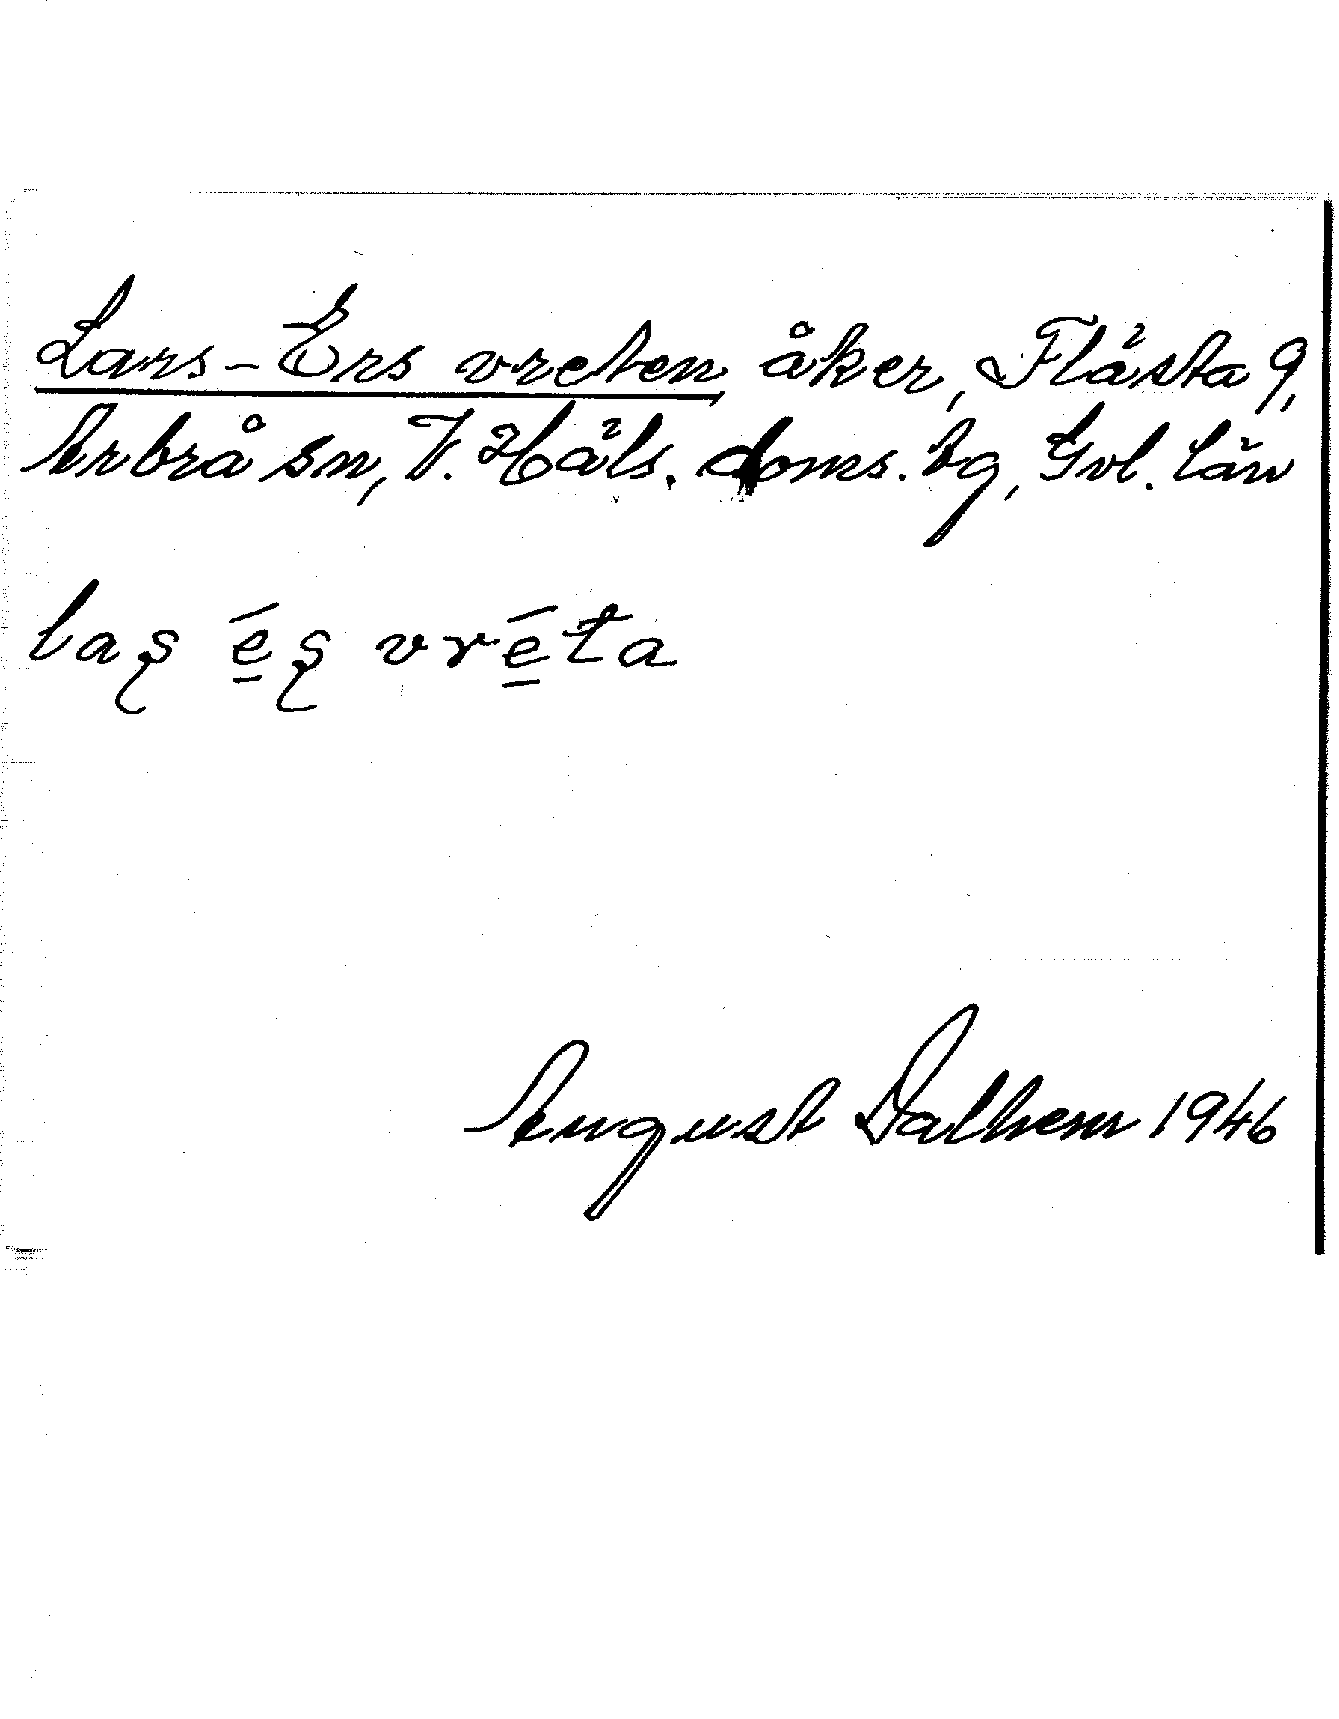 Lars-Ers vreten åker, Flästa 9,
Arbrå sn, V. Häls. doms. tg, Gvl. län
laş é̱ş vré̱ta
August Dalhem 1946